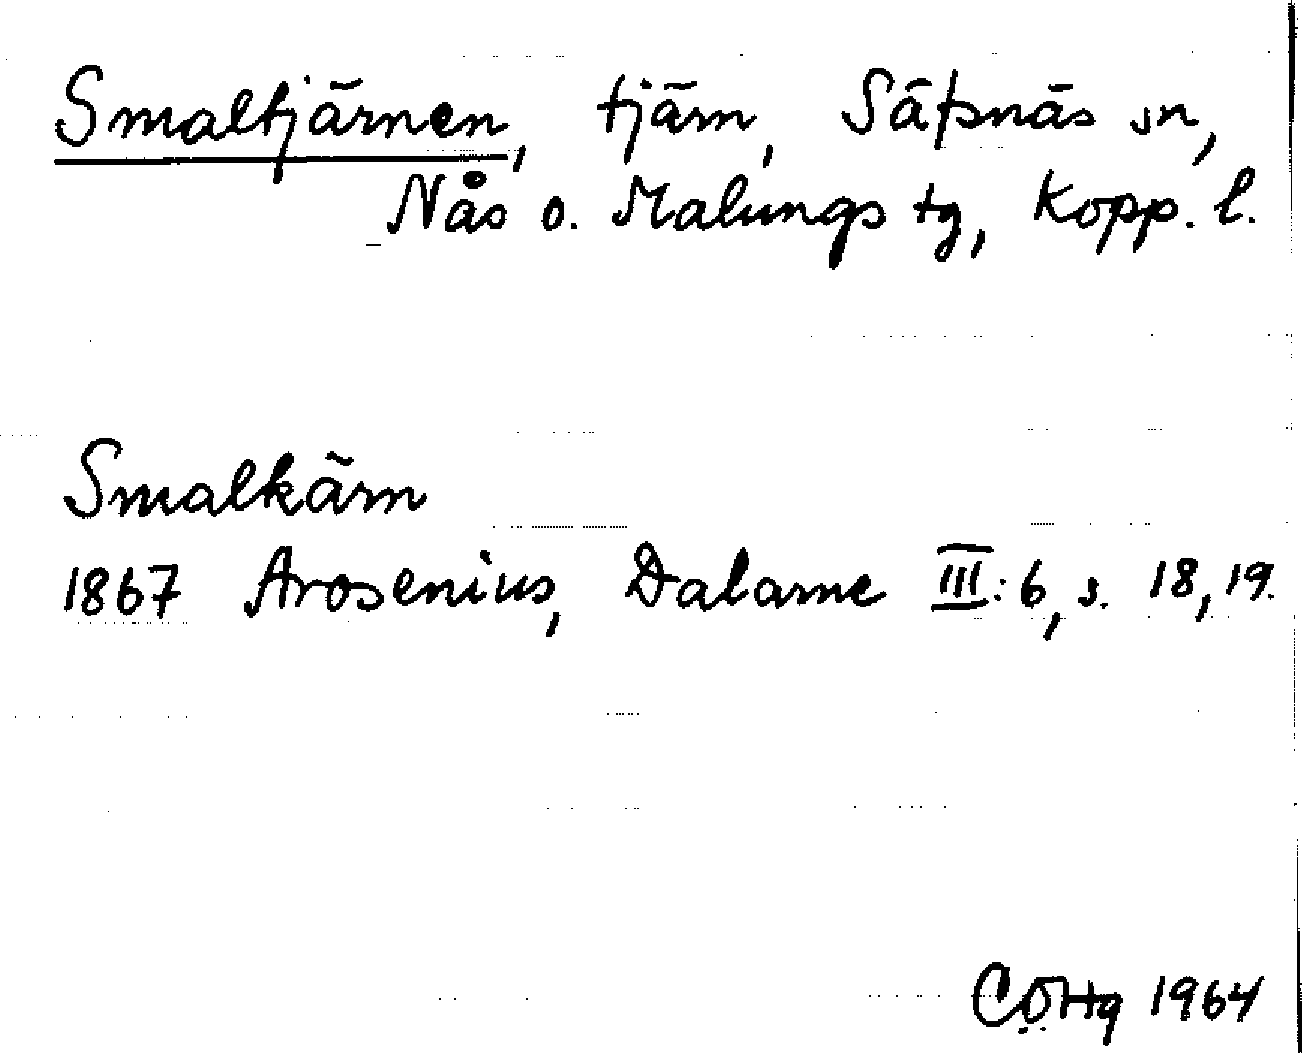 Smaltjärnen, tjärn, Säfsnäs sn,
Nås o. Malungs tg, Kopp. l.
Smalkärn
1867 Arosenius, Dalarne III:6, s. 18, 19.
CÖHg 1964